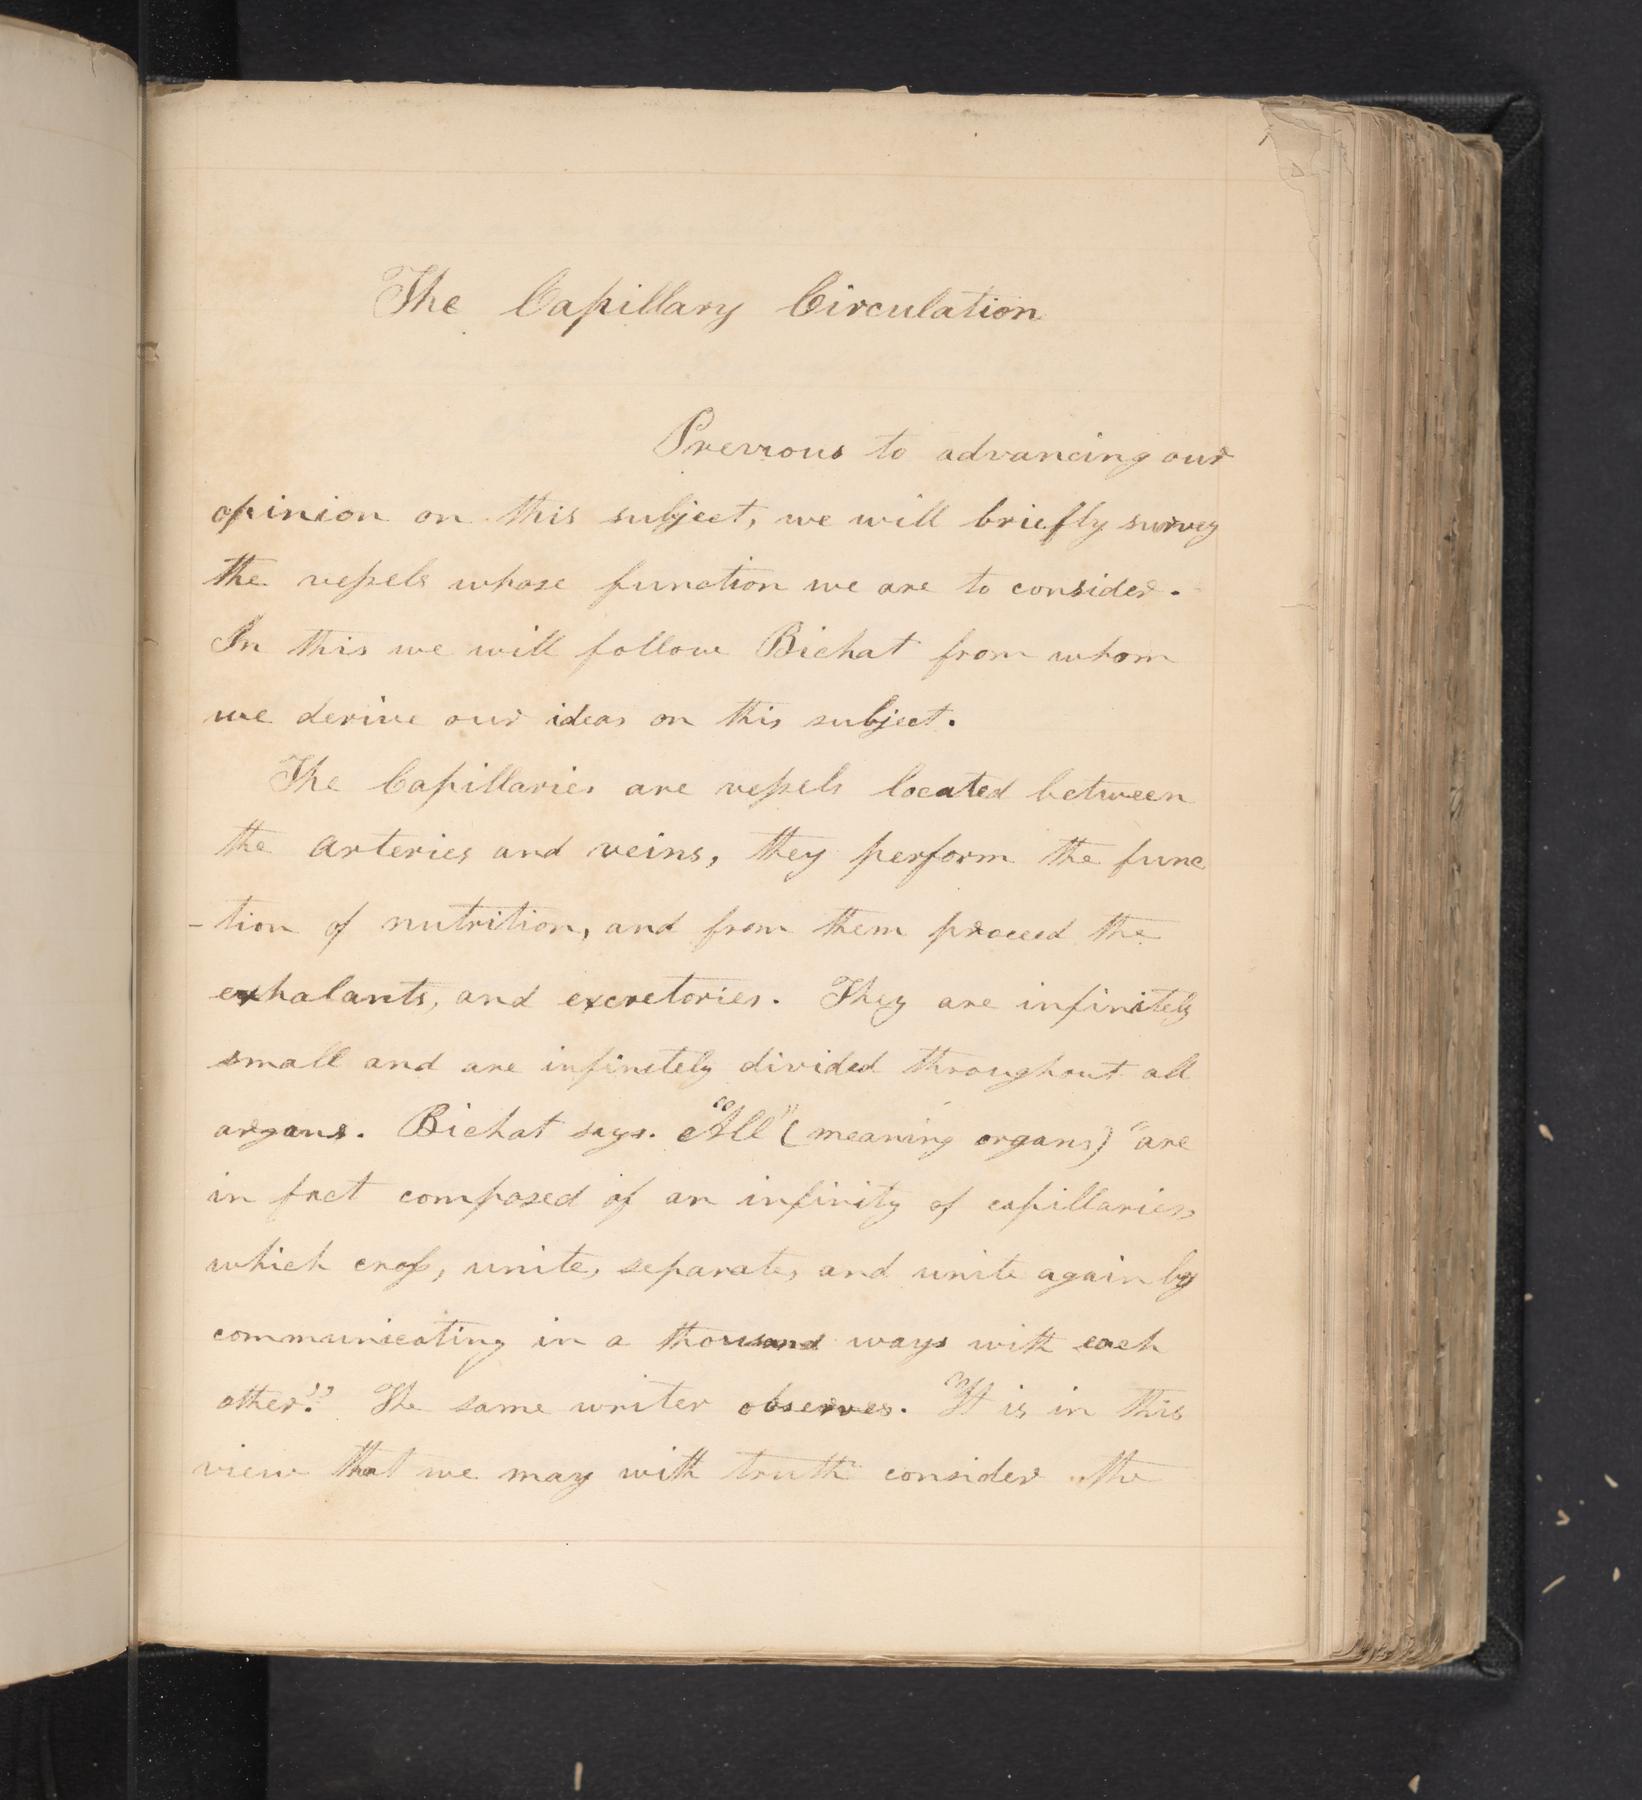 The Capillary Circulation
Previous to advancing our
opinion on this subject, we will briefly survey
the vessels whose function we are to consider.
In this we will follow Bichat from whom
we derive our ideas on this subject.
The Capillaries are vessels located between
the arteries and veins, they perform the func
-tion of nutrition, and from them proceed the
exhalants, and excretories. They are infinitely
small and are infinitely divided throughout all
organs. Bichat says. "All" (meaning organs) "are
in fact composed of an infinity of capillaries,
which cross, unite, separate, and unite again by
communicating in a thousand ways with each
other." The same writer observes. "It is in this
view that we may with truth consider the